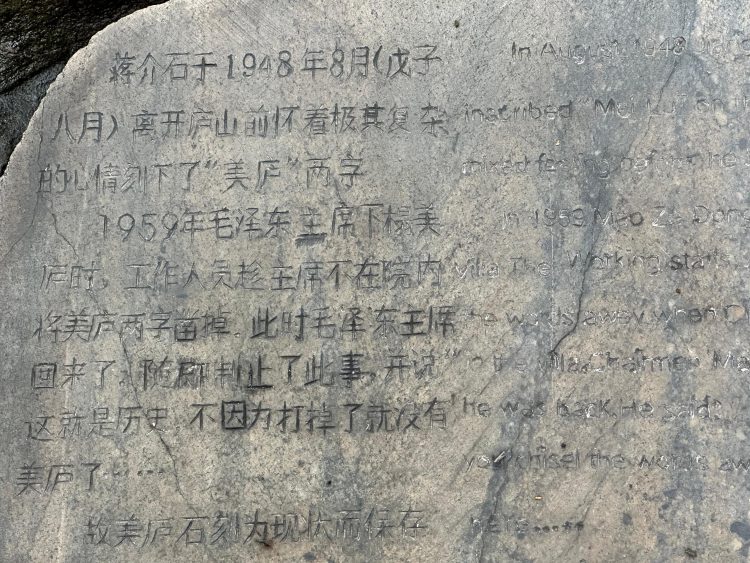 蒋介石于1948年8月(戊子
八月)离开庐山前怀着极其复杂
的心情刻下了“美庐”两字
1959年毛泽东主席下榻美
庐时,工作人员趁主席不在院内
将美庐两字凿掉.此时毛泽东主席
回来了,随即制止了此事,并说“
这就是历史,不因为打掉了就没有
美庐了……
故美庐石刻为现状而保存
In August 1948
inscribed "Mei Lu" on
mixed feeling before he
In 1959 Mao Ze Dong
villa The Working staffs
he words away. when
n the villa. Chairmen
he was back. He said:
you chisel the words aw
here……